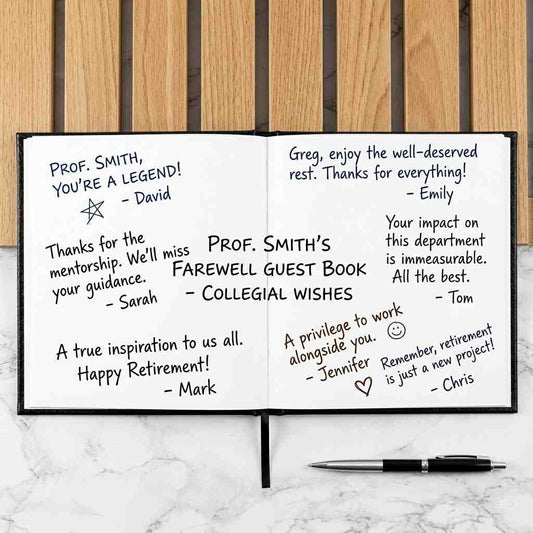 PROF. SMITH,
YOU'RE A LEGEND!
– David
Thanks for the
mentorship. We'll miss
your guidance.
– Sarah
A true inspiration to us all.
Happy Retirement!
– Mark
PROF. SMITH'S
FAREWELL GUEST BOOK
– COLLEGIAL WISHES
Greg, enjoy the well-deserved
rest. Thanks for everything!
– Emily
Your impact on
this department
is immeasurable.
All the best.
– Tom
A privilege to work
alongside you.
– Jennifer
Remember, retirement
is just a new project!
– Chris